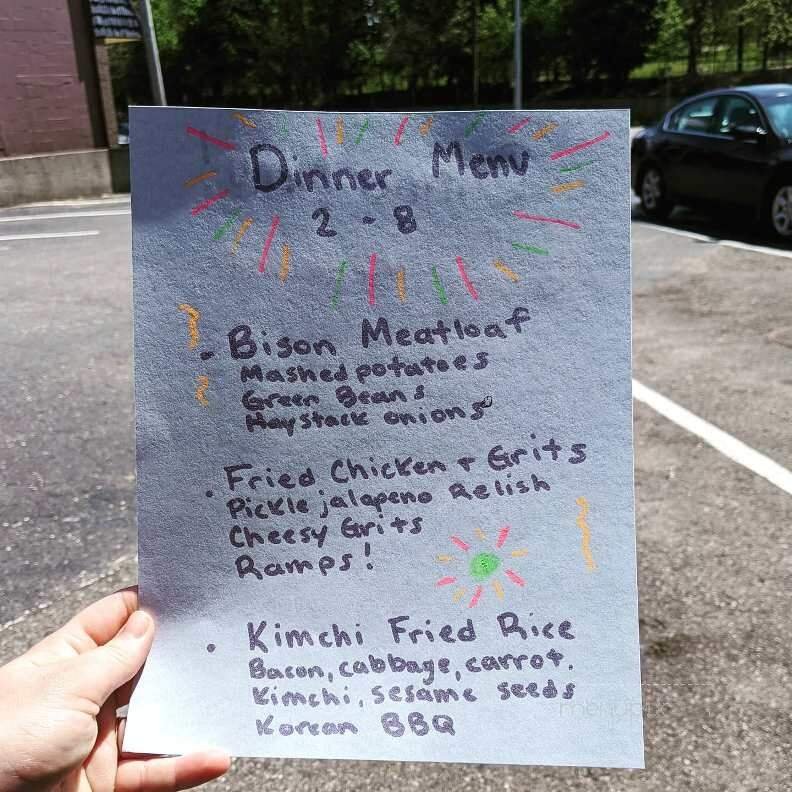 Dinner Menu
2 - 8
- Bison Meatloaf
Mashed potatoes
Green Beans
Haystack onions
• Fried Chicken + Grits
Pickle jalapeno Relish
Cheesy Grits
Ramps!
• Kimchi Fried Rice
Bacon, cabbage, carrot.
Kimchi, sesame seeds
Korean BBQ